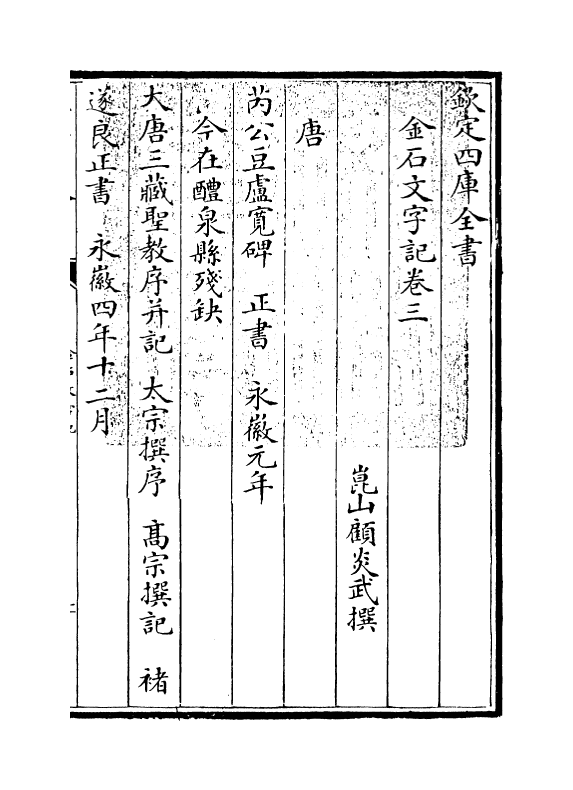 欽定四庫全書
金石文字記卷三
崑山顧炎武撰
唐
芮公豆盧寛碑 正書 永徽元年
今在醴泉縣殘缺
大唐三藏聖教序并記 太宗撰序 髙宗撰記 褚
遂良正書 永徽四年十二月